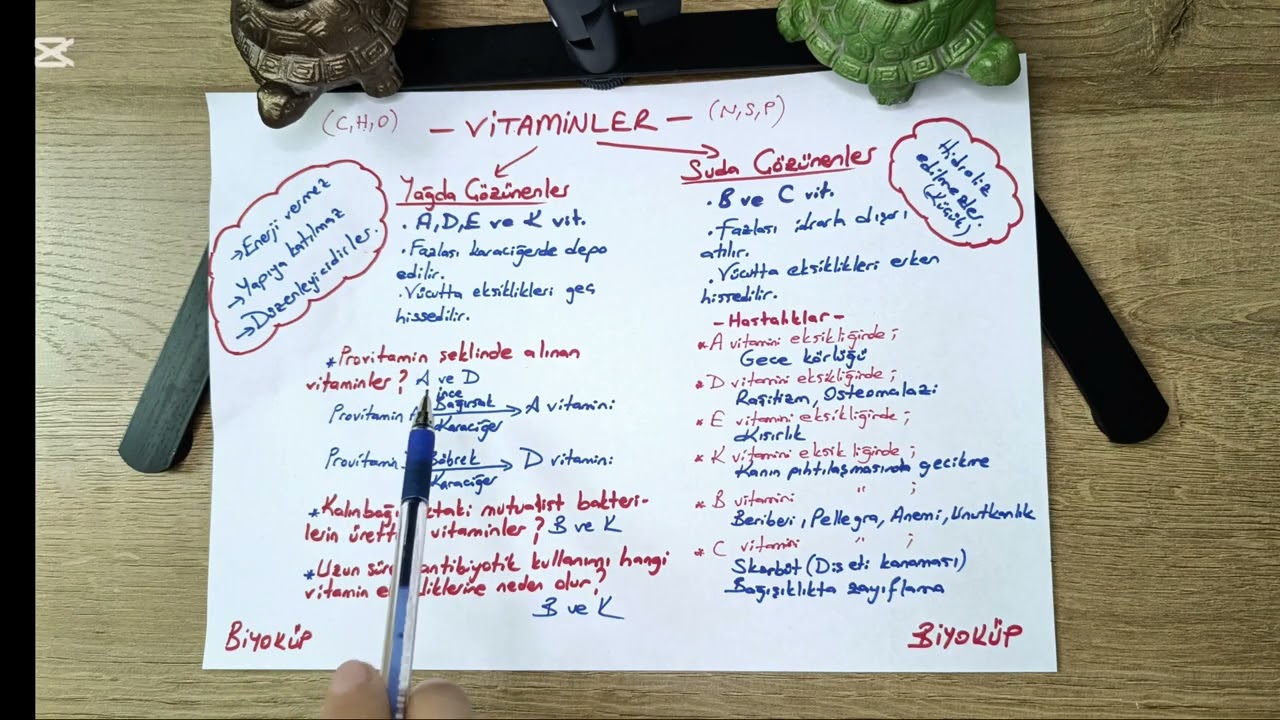 (C,H,O) - VİTAMİNLER - (N,S,P)
→Enerji vermez
→Yapıya katılmaz
→Düzenleyicidirler.
Yağda Çözünenler
• A,D,E ve K vit.
• Fazlası karaciğerde depo
edilir.
• Vücutta eksiklikleri geç
hissedilir.
Suda Çözünenler
• B ve C vit.
• Fazlası idrarla dışarı
atılır.
• Vücutta eksiklikleri erken
hissedilir.
Hidroliz
edilmezler.
(Küçük)
*Provitamin şeklinde alınan
vitaminler? A ve D
Provitamin İnce Bağırsak Karaciğer → A vitamini
Provitamin Böbrek Karaciğer → D vitamini
*Kalınbağ taki mutualist bakteri-
lerin üretti vitaminler? B ve K
*Uzun sür antibiyotik kullanımı hangi
vitamin e liklerine neden olur?
B ve K
- Hastalıklar -
*A vitamini eksikliğinde;
Gece körlüğü
*D vitamini eksikliğinde;
Raşitizm, Osteomalazi
*E vitamini eksikliğinde;
Kısırlık
*K vitamini eksikliğinde;
Kanın pıhtılaşmasında gecikme
*B vitamini " ;
Beriberi, Pellegra, Anemi, Unutkanlık
*C vitamini " ;
Skorbüt (Diş eti kanaması)
Bağışıklıkta zayıflama
BİYOKÜP
BİYOKÜP